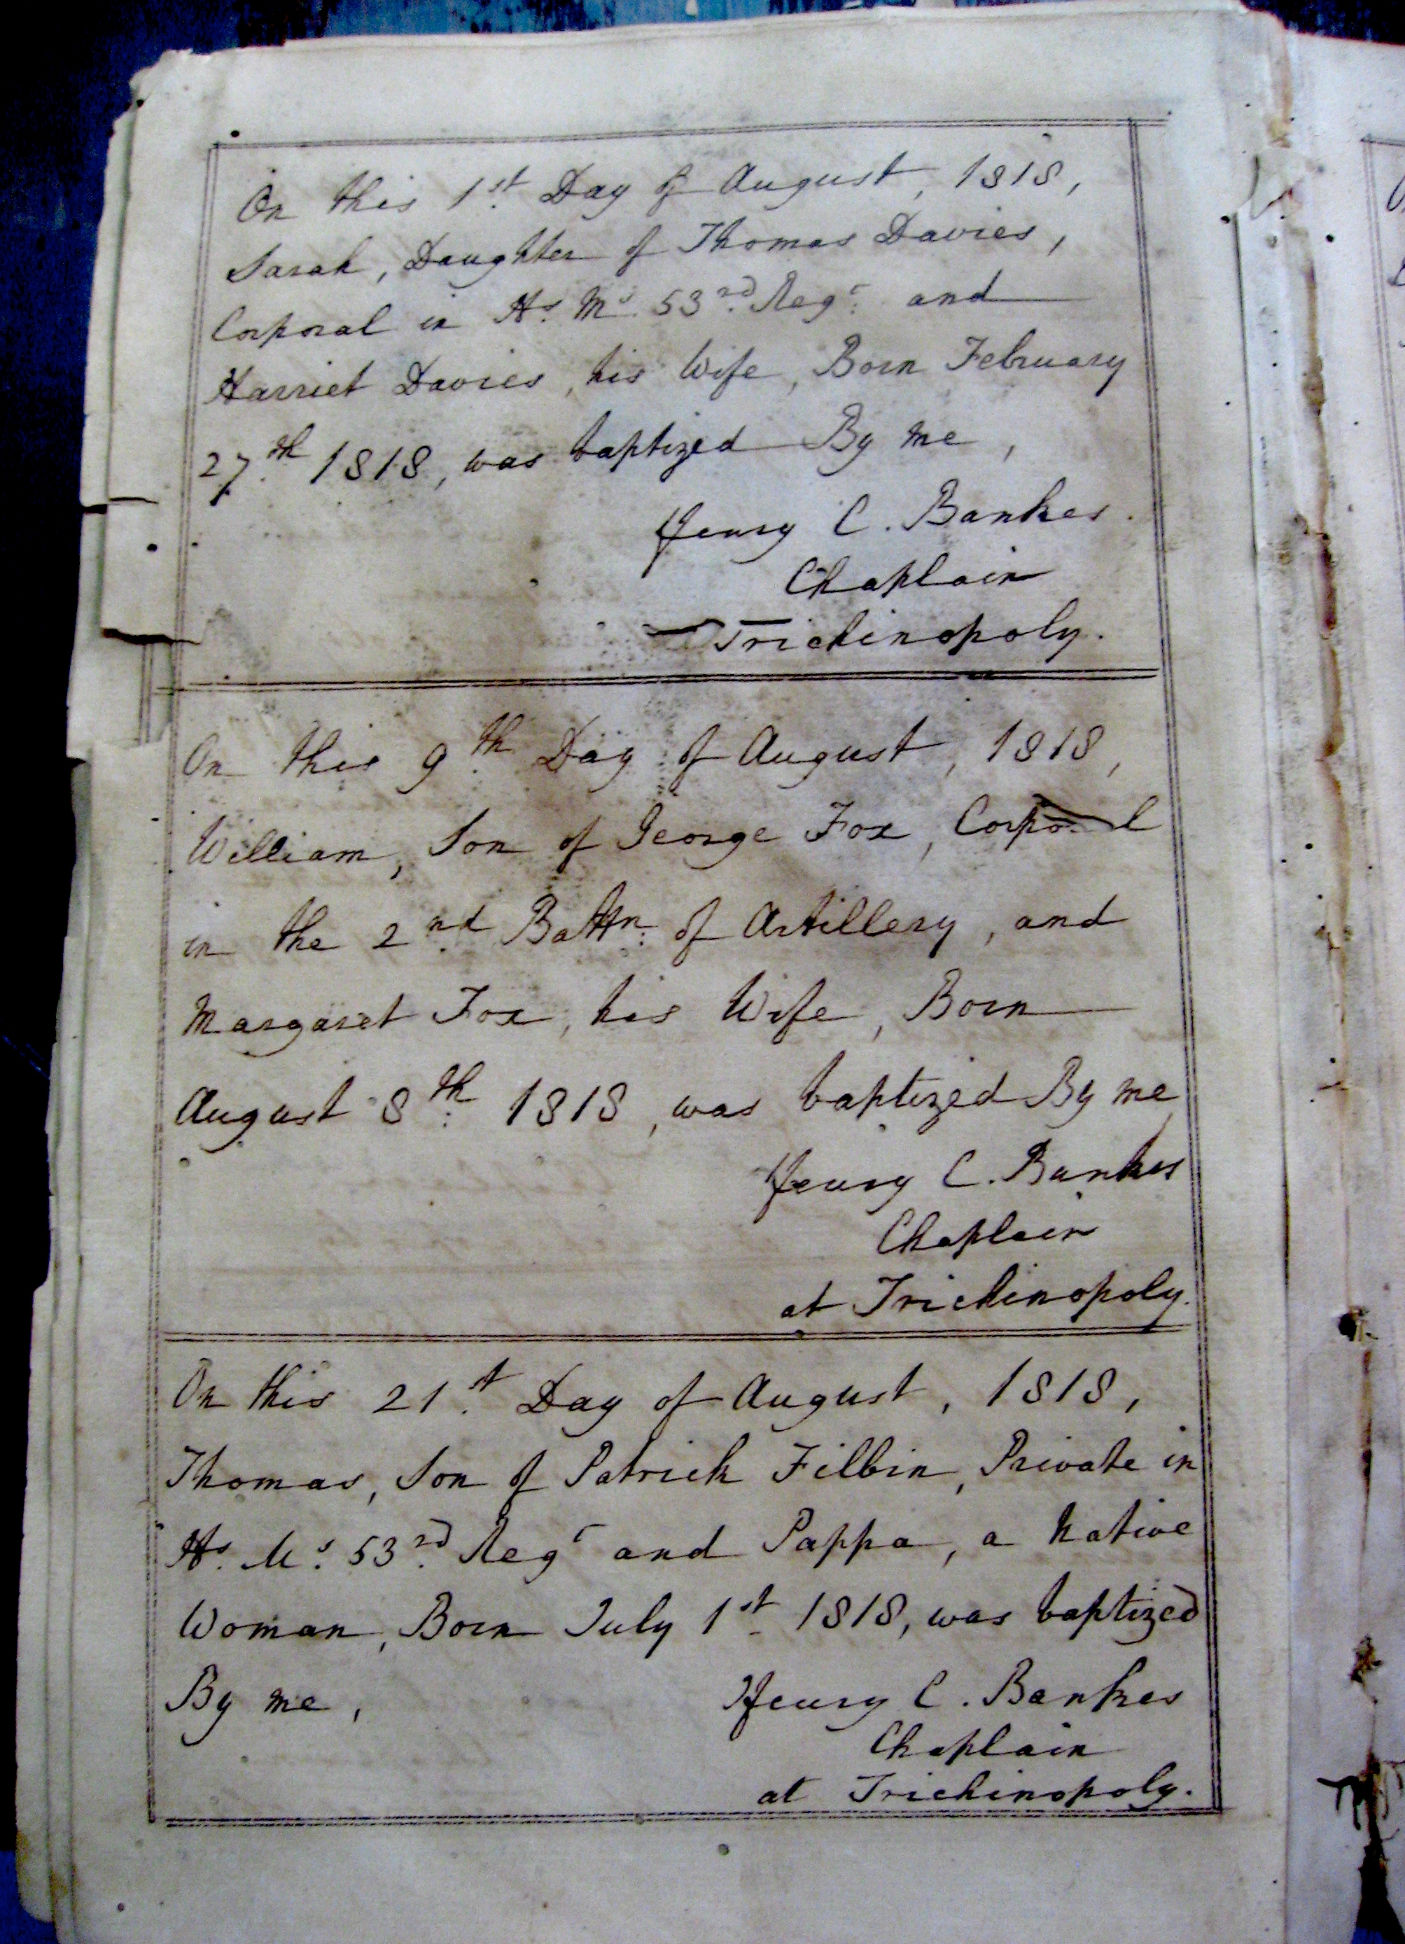 On this 1st Day of August, 1818,
Sarah, Daughter of Thomas Davies,
Corporal in Hs. Ms. 53rd Regt. and
Harriet Davies, his Wife, Born February
27th 1818, was baptized By me,
Henry C. Bankes.
Chaplain
Trichinopoly.
On this 9th Day of August, 1818,
William, Son of George Fox, Corporal
in the 2nd Battn. of Artillery, and
Margaret Fox, his Wife, Born
August 8th 1818, was baptized By me
Henry C. Bankes
Chaplain
at Trichinopoly.
On this 21st Day of August, 1818,
Thomas, Son of Patrick Filbin, Private in
Hs. Ms. 53rd Regt and Pappa, a Native
Woman, Born July 1st 1818, was baptized
By me, Henry C. Bankes
Chaplain
at Trichinopoly.